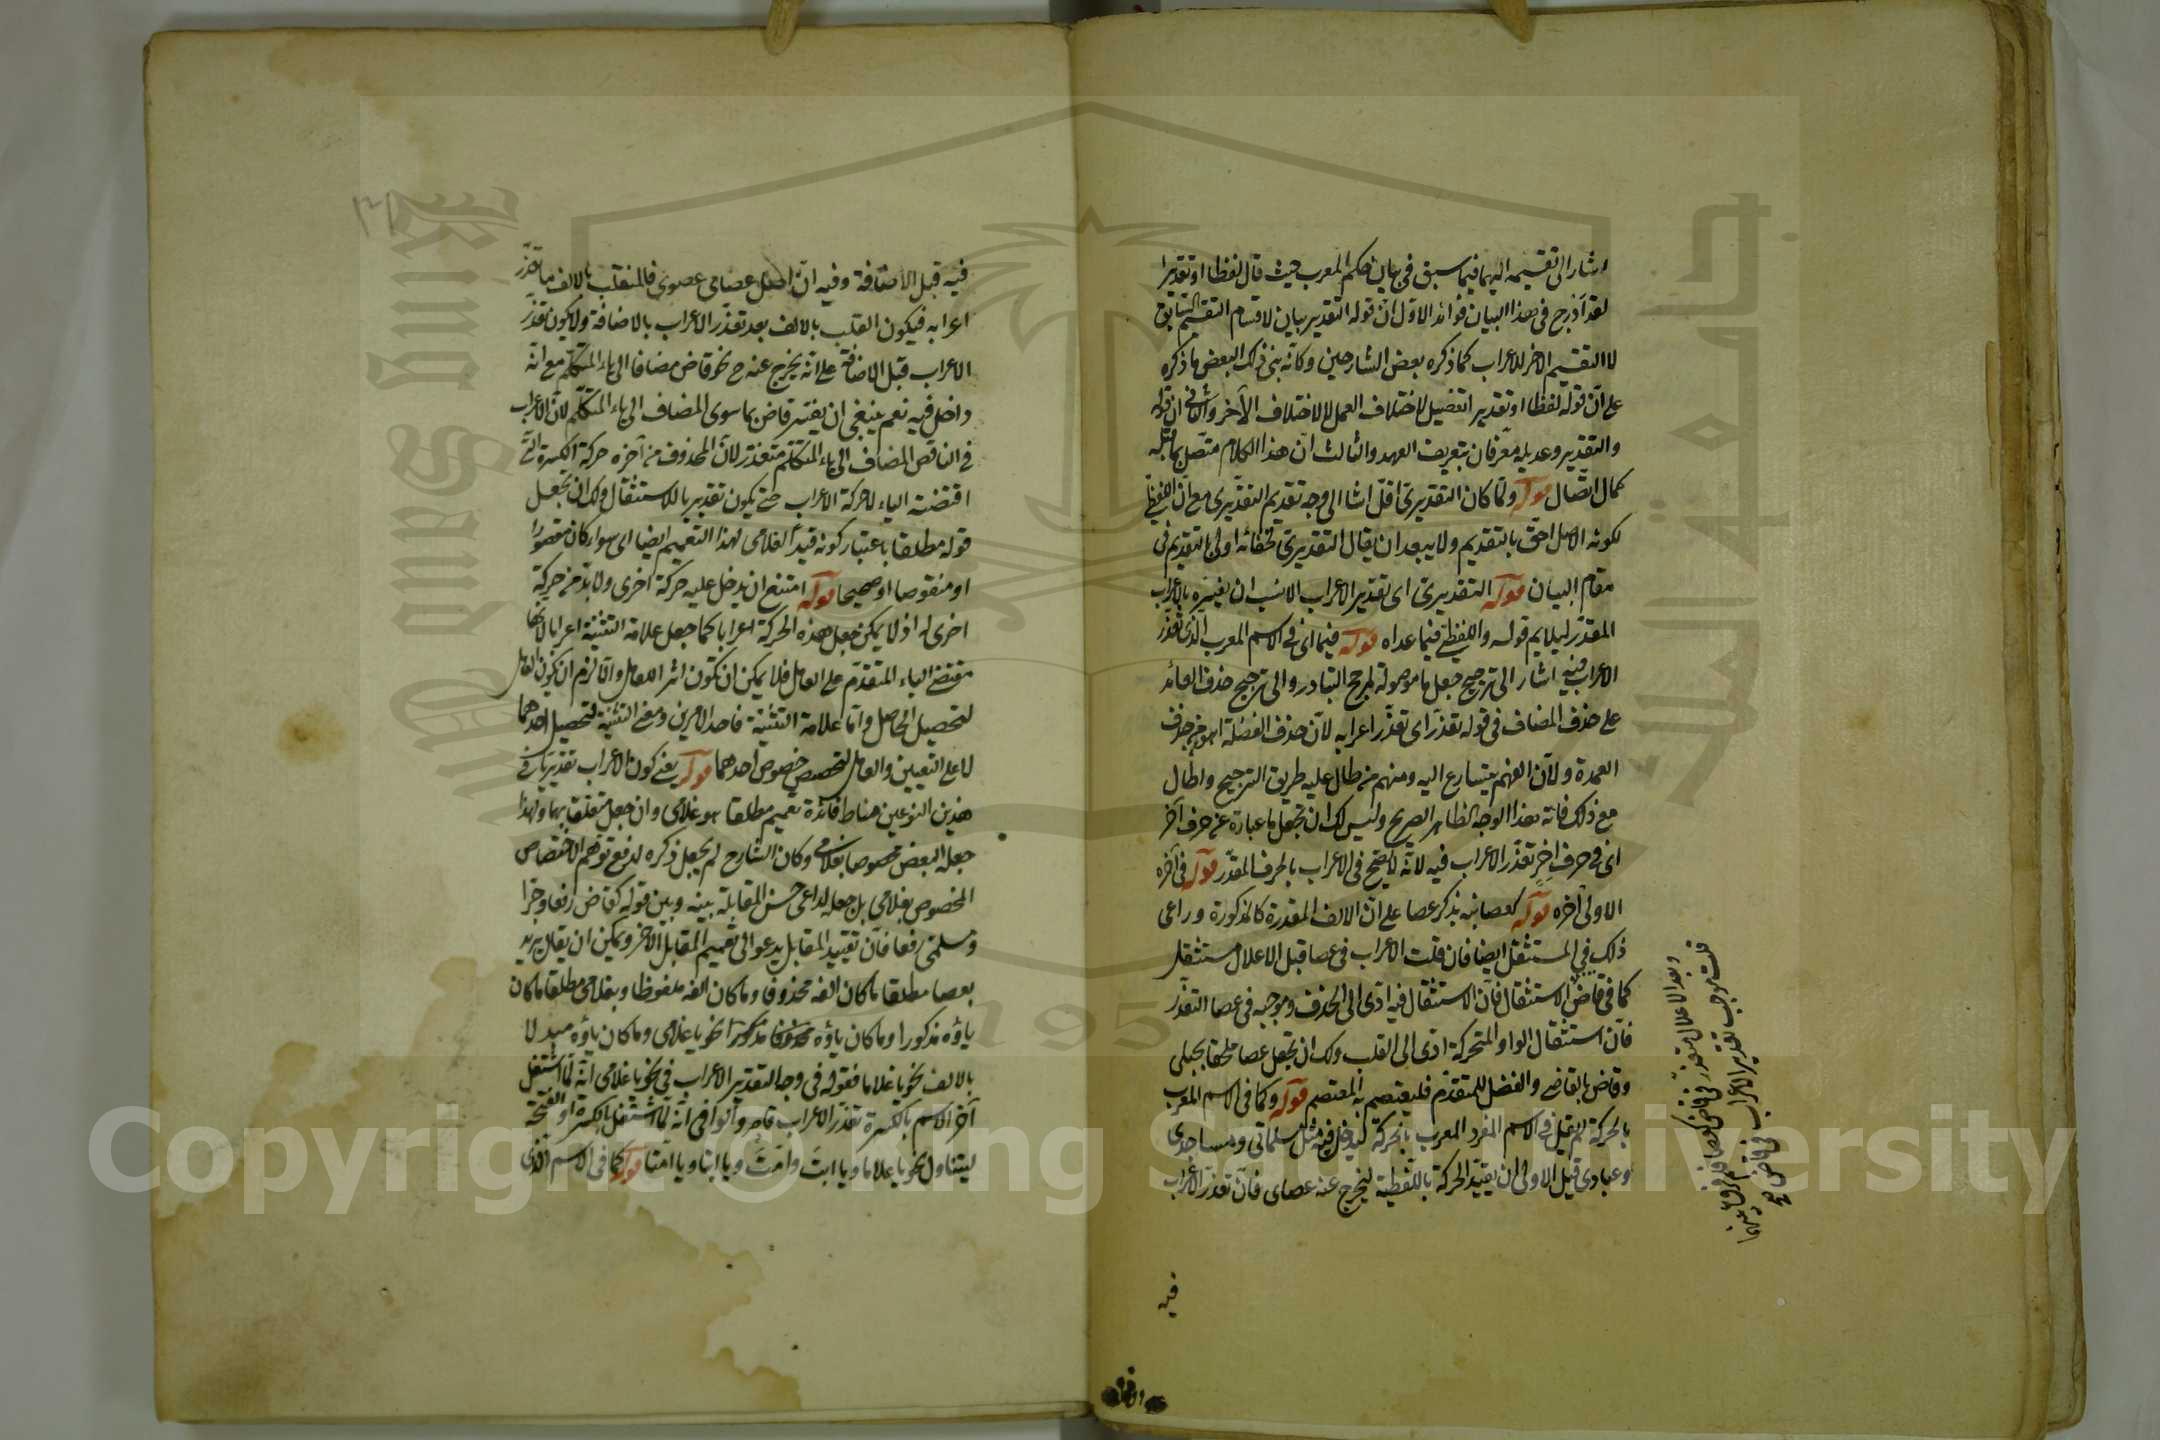 اشار الى تقسيمه اليهما فيما سبق فى بيان حكم المعرب حيث قال لفظا او تقديرا
لقد ادرج فى هذا البيان فوائد الاول ان قوله التقدير بيان لاقسام التقسيم السابق
لا التقسيم الاخر للاعراب كما ذكره بعض الشارحين وكانه بنى ذلك البعض ما ذكره
على ان قوله لفظا او تقديرا تفصيل لاختلاف العمل لا لاختلاف الآخر والثانى ان قوله
والتقدير وعديله معرفان بتعريف العهد والثالث ان هذا الكلام متصل بما قبله
كمال اتصال قوله ولما كان التقديرى اقل اشا الى وجه تقديم التقديرى مع ان اللفظى
لكونه الاصل احق بالتقديم ولا يبعد ان يقال التقديرى لخفائه اولى بالتقديم فى
مقام البيان قوله التقديرى اى تقدير الاعراب الانسب ان يفسره بالاعراب
المقدر ليلايم قوله واللفظى فيما عداه قوله فيما اى فى الاسم المعرب الذى تعذر
الاعراب فيه اشار الى ترجيح جعل ما موصولة لمرجح التبادر والى ترجيح حذف العائد
على حذف المضاف فى قوله تعذر اى تعذر اعرابه لان حذف الفضلة اهون من حذف
العمدة ولان الفهم يتسارع اليه ومنهم من طال عليه طريق الترجيح واطال
مع ذلك فانه بهذا الوجه الظاهر الصريح وليس لك ان تجعل ما عبارة عن حرف آخر
اى فى حرف اخر تعذر الاعراب فيه لانه لا يصح فى الاعراب بالحرف المقدر قوله فى آخره
الاولى آخره قوله كعصا نبه بذكر عصا على ان الالف المقدرة كالمذكورة وراعى
ذلك فى المستثقل ايضا فان قلت الاعراب فى عصا قبل الاعلال مستثقل
كما فى قاض الاستثقال فان الاستثقال فيه ادى الى الحذف وموجبه فى عصا التعذر
فان استثقال الواو المتحركة ادى الى القلب ولك ان تجعل عصا ملحقا بحبلى
وقاض بالقاضى والفضل للمتقدم فليعتصم به المعتصم قوله وكما فى الاسم المعرب
بالحركة لم يقل فى الاسم المفرد المعرب بالحركة ليدخل فيه مثل مسلماتى ومساجدى
وعبادى قيل الاولى ان يقيد الحركة باللفظية ليخرج عنه عصاى فان تعذر الاعراب
فيه
قلت موجب تقدير الاعراب فى قاض
وبعد الاعلال متعذر فى قاض كعصا فلم فرق بينهما
فيه قبل الاضافة وفيه ان اصل عصاى عصوى فالمنقلب بالالف ما تعذر
اعرابه فيكون القلب بالالف بعد تعذر الاعراب بالاضافة ولا يكون تعذر
الاعراب قبل الاضافة على انه يخرج عنه ح نحو قاض مضافا الى ياء المتكلم مع انه
داخل فيه نعم ينبغى ان يفسر قاض بما سوى المضاف الى ياء المتكلم لان الاعراب
فى الناقص المضاف الى ياء المتكلم متعذر لان المحذوف من آخره حركة الكسرة التى
اقتضته الياء لا حركة الاعراب حتى يكون تقديريا للاستثقال ولك ان تجعل
قوله مطلقا باعتبار كونه قيدا لغلامى لهذا التعميم ايضا اى سواء كان مقصورا
او منقوصا او صحيحا قوله امتنع ان يدخل عليه حركة اخرى ولا بد من حركة
اخرى له اذ لا يمكن جعل هذه الحركة اعرابا كما جعل علامة التثنية اعرابا لانها
مقتضى الياء المتقدم على العامل فلا يمكن ان تكون اثر العامل والا لزم ان يكون العامل
لتحصيل الحاصل واما علامة التثنية فاحد الامرين ومعنى التثنية لتحصيل احدهما
لا على التعيين والعامل لتحصيص خصوص احدهما قوله يعنى كون الاعراب تقديريا فى
هذين النوعين مناط فائدة تعميم مطلقا هو غلامى وان جعل متعلقا بهما ولهذا
جعله البعض مخصوصا بغلامى وكان الشارح لم يجعل ذكره لدفع توهم الاختصاص
المخصوص بغلامى بل جعله لداعى حسن المقابلة بينه وبين قوله كقاض رفعا وجرا
ومسلمى رفعا فان تقييد المقابل يدعو الى تعميم المقابل الآخر ويمكن ان يقال يريد
بعصا مطلقا ما كان الفه محذوفا وما كان الفه ملفوظا وبغلامى مطلقا ما كان
ياؤه مذكورا وما كان ياؤه محذوفا مذكورا نحو يا غلامى وما كان ياؤه مبدلا
بالالف نحو يا غلاما فقوله فى وجه التقدير الاعراب فى نحو يا غلامى انه لما اشتغل
آخر الاسم بالكسرة تعذر الاعراب قاصر والوافى انه لما اشتغل بالكسرة او الفتحة
ليتناول نحو يا غلاما ويا ابت وامت ويا ابتا ويا امتا قوله كما فى الاسم الذى